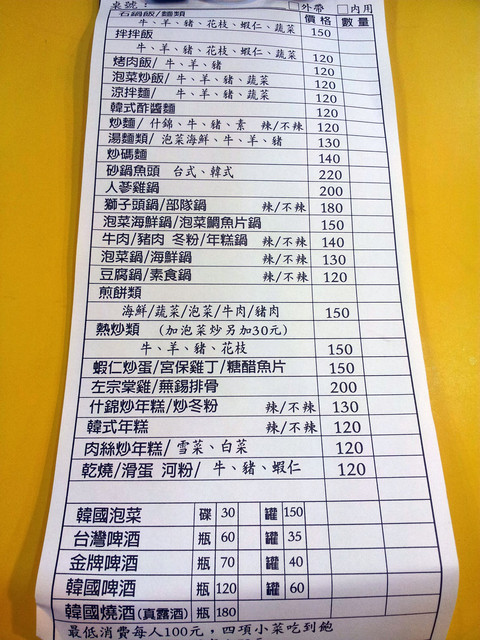 桌號： □外帶 □內用
石鍋飯/麵類 價格 數量
牛、羊、豬、花枝、蝦仁、蔬菜 150
拌拌飯
牛、羊、豬、花枝、蝦仁、蔬菜 120
烤肉飯/ 牛、羊、豬 120
泡菜炒飯/ 牛、羊、豬、蔬菜 120
涼拌麵/ 牛、羊、豬、蔬菜 120
韓式酢醬麵 120
炒麵/ 什錦、牛、羊、豬、素 辣/不辣 120
湯麵類/ 泡菜海鮮、牛、羊、豬 130
炒碼麵 140
砂鍋魚頭 台式、韓式 220
人蔘雞鍋 200
獅子頭鍋/部隊鍋 辣/不辣 180
泡菜海鮮鍋/泡菜鯛魚片鍋 150
牛肉/豬肉 冬粉/年糕鍋 辣/不辣 140
泡菜鍋/海鮮鍋 辣/不辣 130
豆腐鍋/素食鍋 辣/不辣 120
煎餅類
海鮮/蔬菜/泡菜/牛肉/豬肉 150
熱炒類 （加泡菜炒另加30元）
牛、羊、豬、花枝 150
蝦仁炒蛋/宮保雞丁/糖醋魚片 150
左宗棠雞/無錫排骨 200
什錦炒年糕/炒冬粉 辣/不辣 130
韓式年糕 辣/不辣 120
肉絲炒年糕/ 雪菜、白菜 120
乾燒/滑蛋 河粉/ 牛、豬、蝦仁 120
韓國泡菜 碟 30 罐 150
台灣啤酒 瓶 60 罐 35
金牌啤酒 瓶 70 罐 40
韓國啤酒 瓶 120 罐 60
韓國燒酒(真露酒) 瓶 180
最低消費每人100元，四項小菜吃到飽